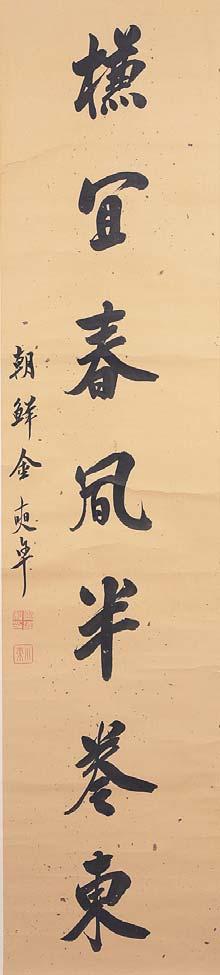 宜春風半卷東
朝鮮金奭準